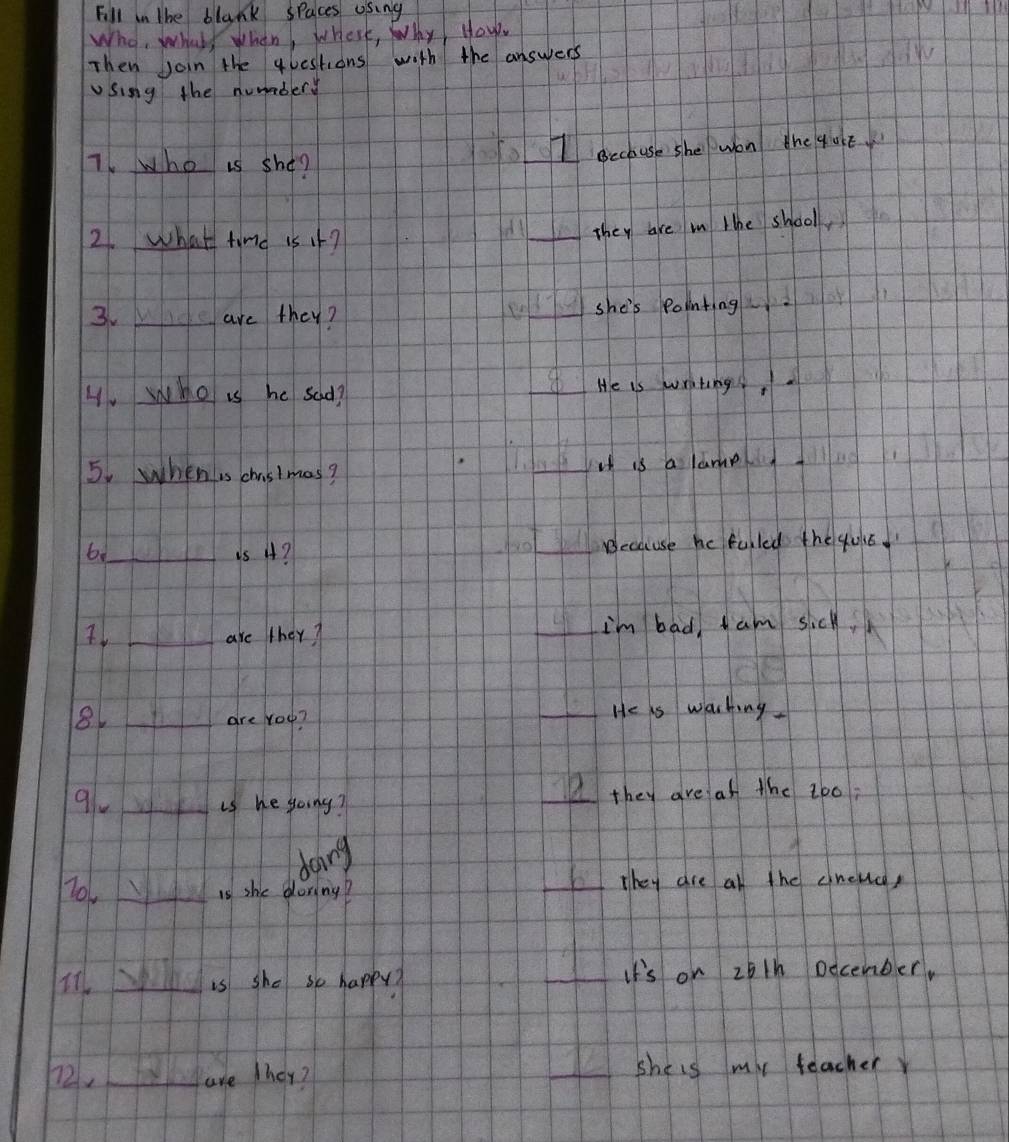 Fill in the blank spaces using
Who, What, When, Where, Why, How.
Then Join the questions with the answers
using the numbers
1. Who is she? 1 Because she won the quiz.
2. What time is it? They are in the shool.
3. are they? she's Pointing
4. Who is he sad? 8 He is writing.
5. When is christmas? it is a lamp
6. is it? Because he failed the quis.
7. are they? i'm bad, I am sick.
8. are you? He is waiting.
9. is he going? 2 they are at the zoo
doing
10. is she doring? 6 They are at the cinema,
11. is she so happy? it's on 25th December.
12. are they? she is my teacher